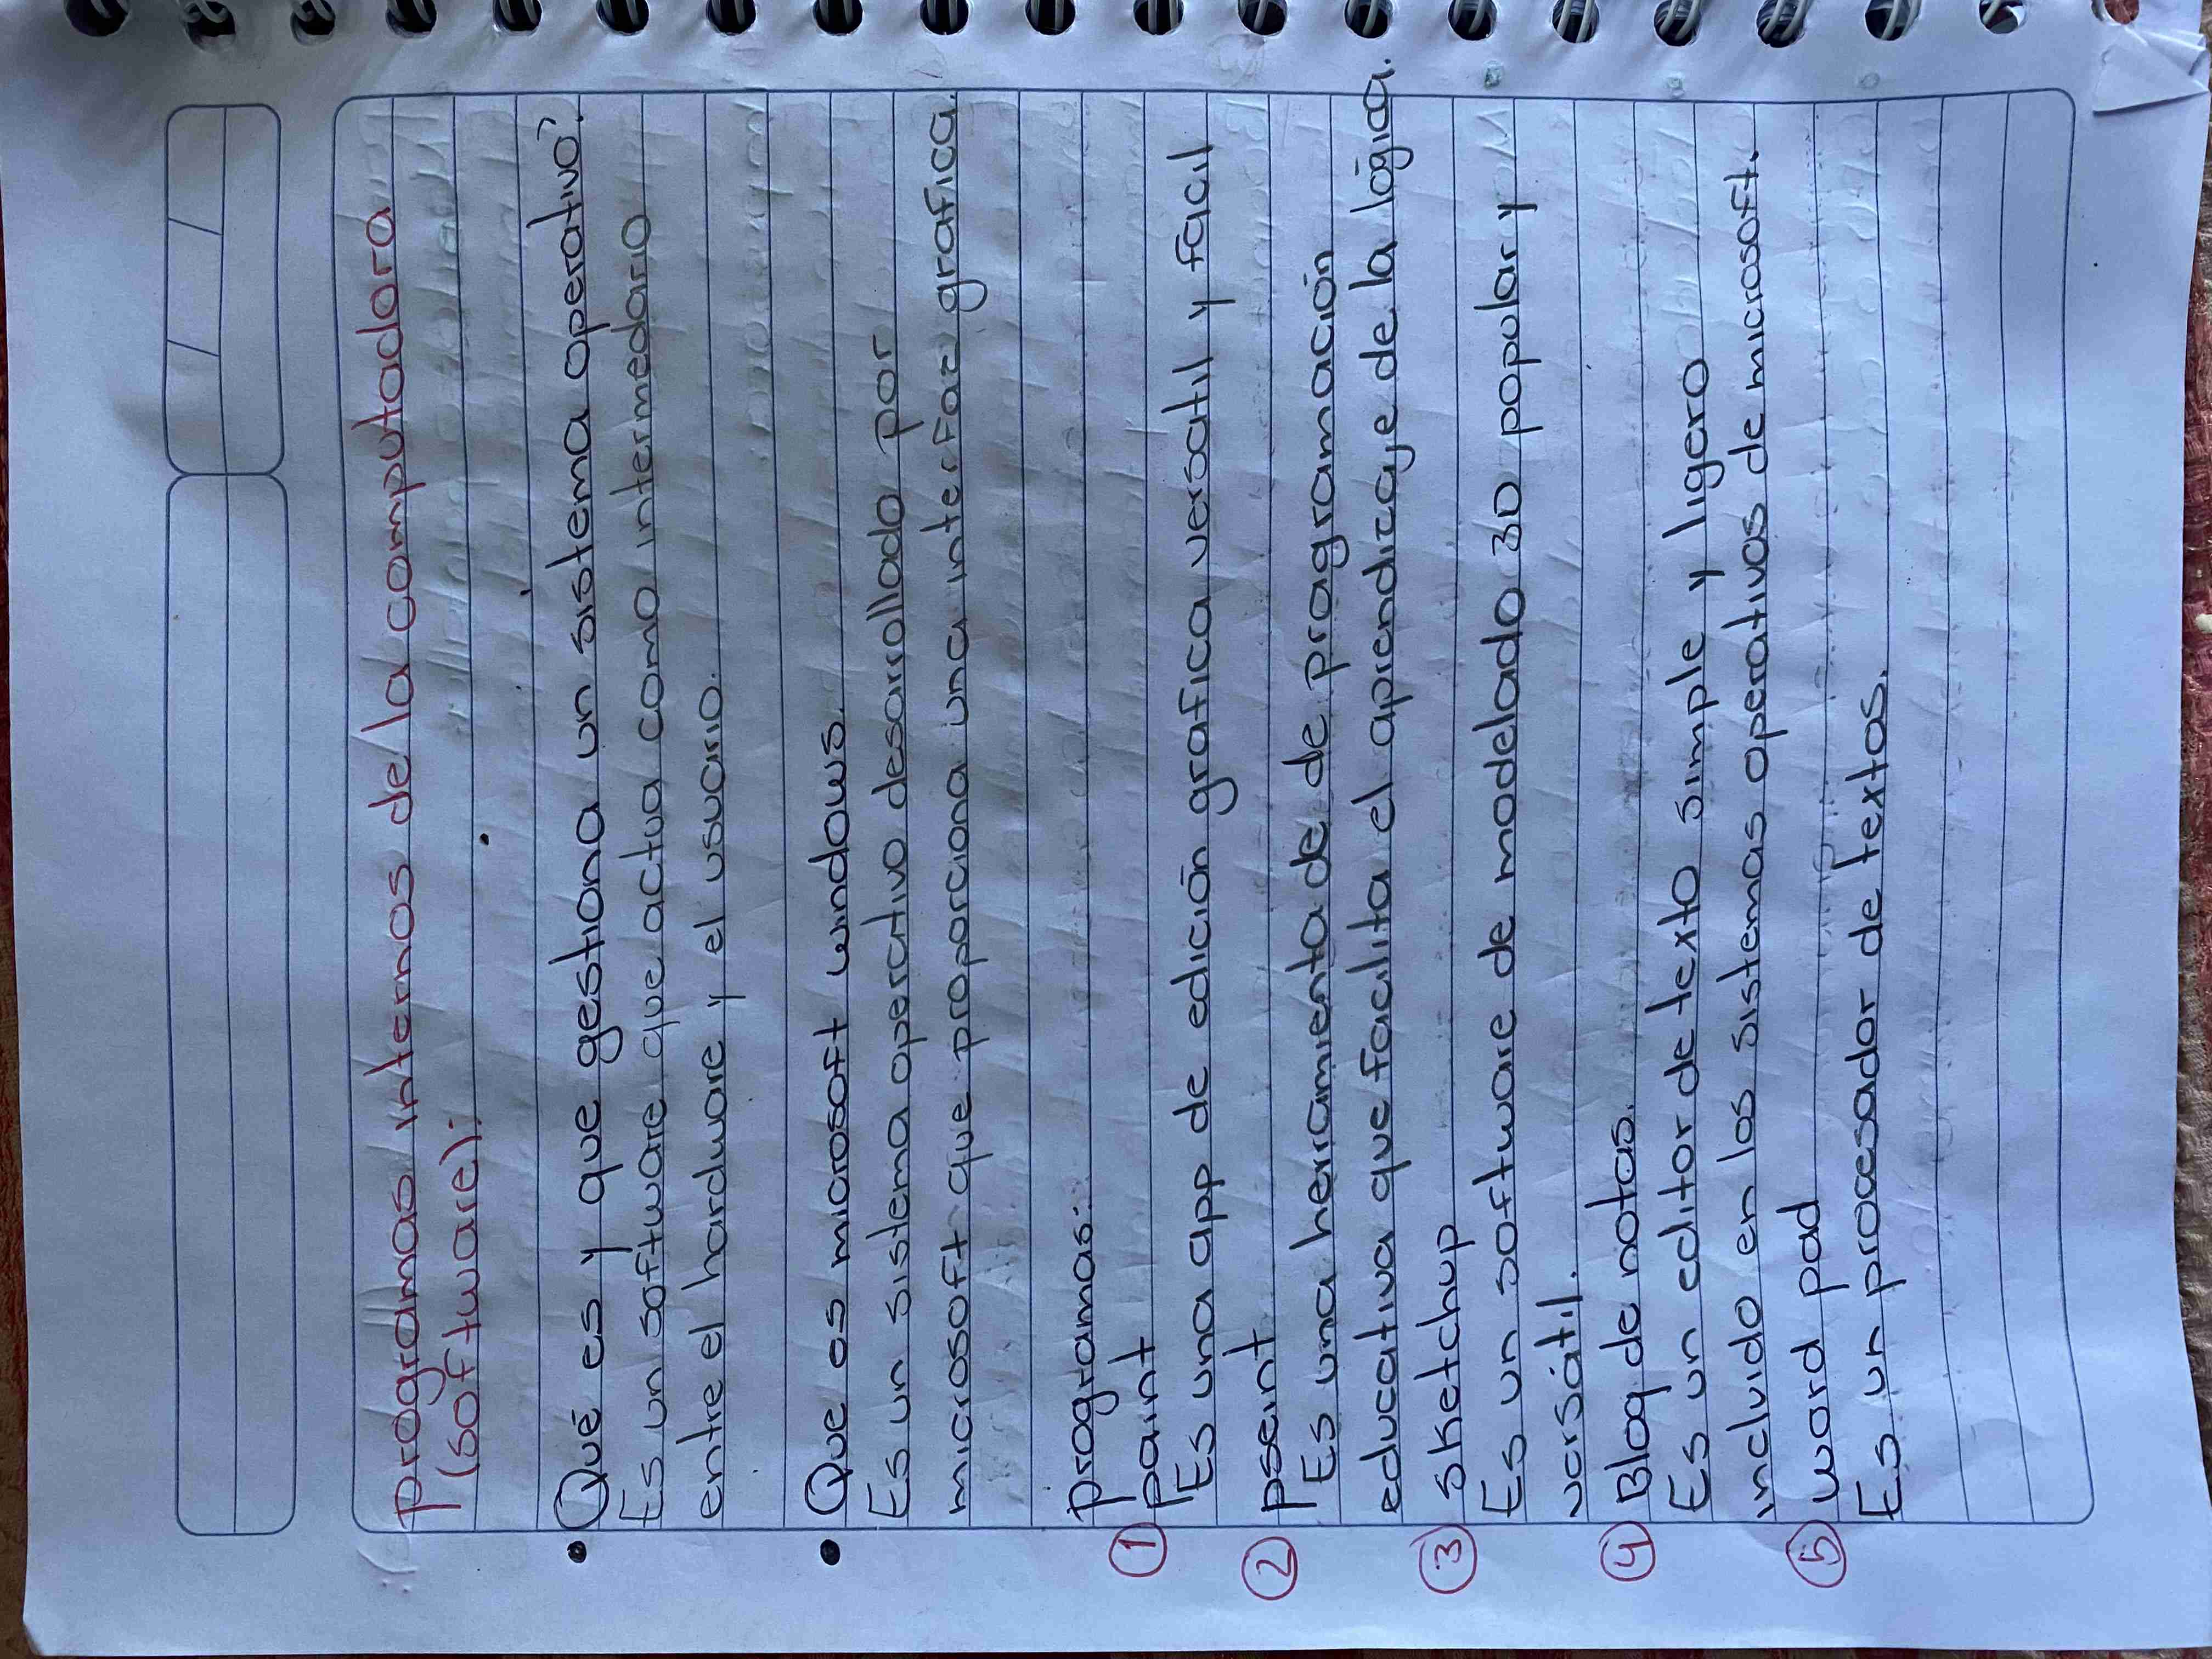 programas internos de la computadora
(software):
• Qué es y que gestiona un sistema operativo?
Es un software que actua como intermedario
entre el hardware y el usuario.
• Que es microsoft windows.
Es un sistema operativo desarrollado por
microsoft que proporciona una interfaz grafica.
programas:
① paint
Es una app de edición grafica versatil y facil
② pseint
Es una herramienta de programación
educativa que facilita el aprendizaje de la lógica.
③ sketchup
Es un software de modelado 3D popular y
versátil.
④ Bloq de notas.
Es un editor de texto simple y ligero
incluido en los sistemas operativos de microsoft.
⑤ word pad
Es un procesador de textos.